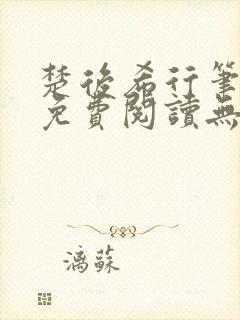 楚後希行筆
免費閱讀無
漓蘇